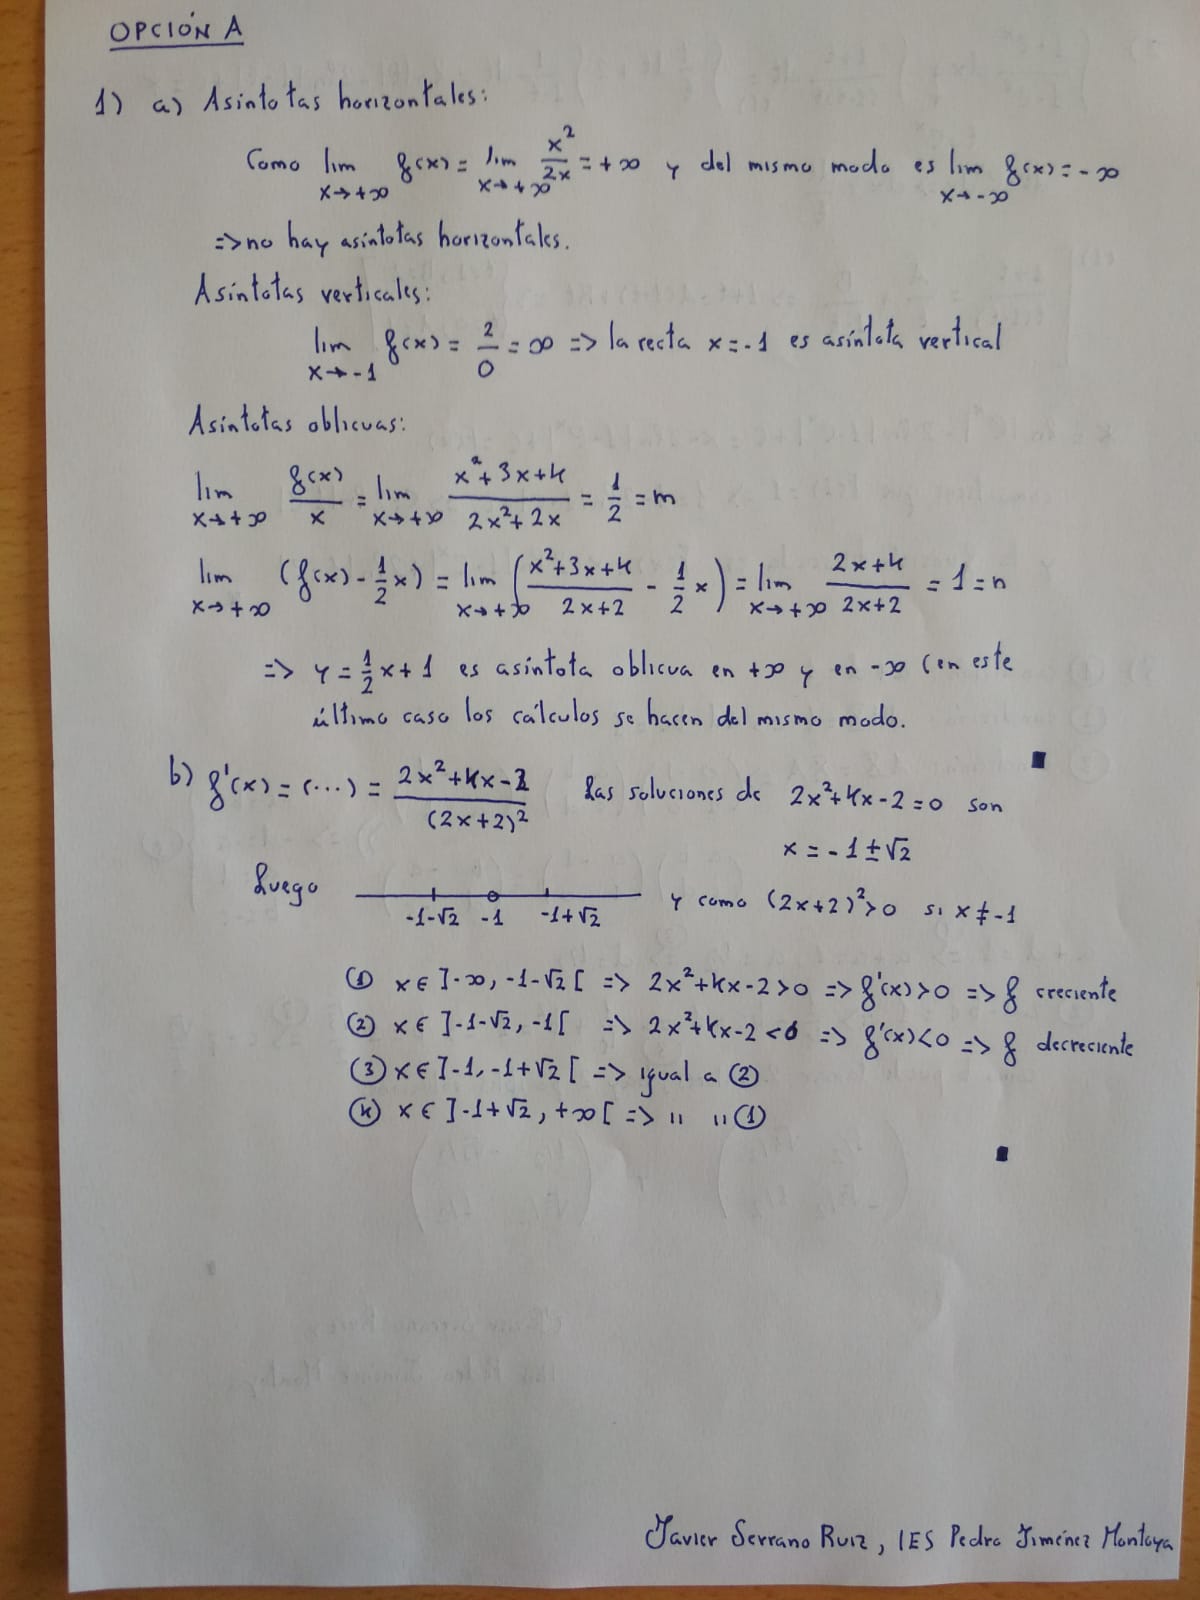 OPCIÓN A
1) a) Asíntotas horizontales:
Como lim x→+∞ f(x) = lim x→+∞ x²/2x = +∞ y del mismo modo es lim x→-∞ f(x) = -∞
=> no hay asíntotas horizontales.
Asíntotas verticales:
lim x→-1 f(x) = 2/0 = ∞ => la recta x = -1 es asíntota vertical
Asíntotas oblicuas:
lim x→+∞ f(x)/x = lim x→+∞ (x²+3x+4)/(2x²+2x) = 1/2 = m
lim x→+∞ (f(x) - 1/2 x) = lim x→+∞ ((x²+3x+4)/(2x+2) - 1/2 x) = lim x→+∞ (2x+4)/(2x+2) = 1 = n
=> y = 1/2 x + 1 es asíntota oblicua en +∞ y en -∞ (en este
último caso los cálculos se hacen del mismo modo.
b) f'(x) = (...) = (2x²+4x-2)/(2x+2)² Las soluciones de 2x²+4x-2=0 son
x = -1±√2
Luego -1-√2 -1 -1+√2 y como (2x+2)²>0 si x≠-1
① x ∈ ]-∞, -1-√2[ => 2x²+4x-2>0 => f'(x)>0 => f creciente
② x ∈ ]-1-√2, -1[ => 2x²+4x-2<0 => f'(x)<0 => f decreciente
③ x ∈ ]-1, -1+√2[ => igual a ②
④ x ∈ ]-1+√2, +∞[ => " " ①
Javier Serrano Ruiz, IES Pedro Jiménez Montoya